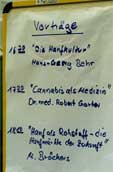 Vorträge
16 00 "Die Hanfkultur"
Hans-Georg Behr
17 00 "Cannabis als Medizin"
Dr. med. Robert Gorter
18 00 "Hanf als Rohstoff - die
Hanfmühle der Zukunft"
M. Bröckers